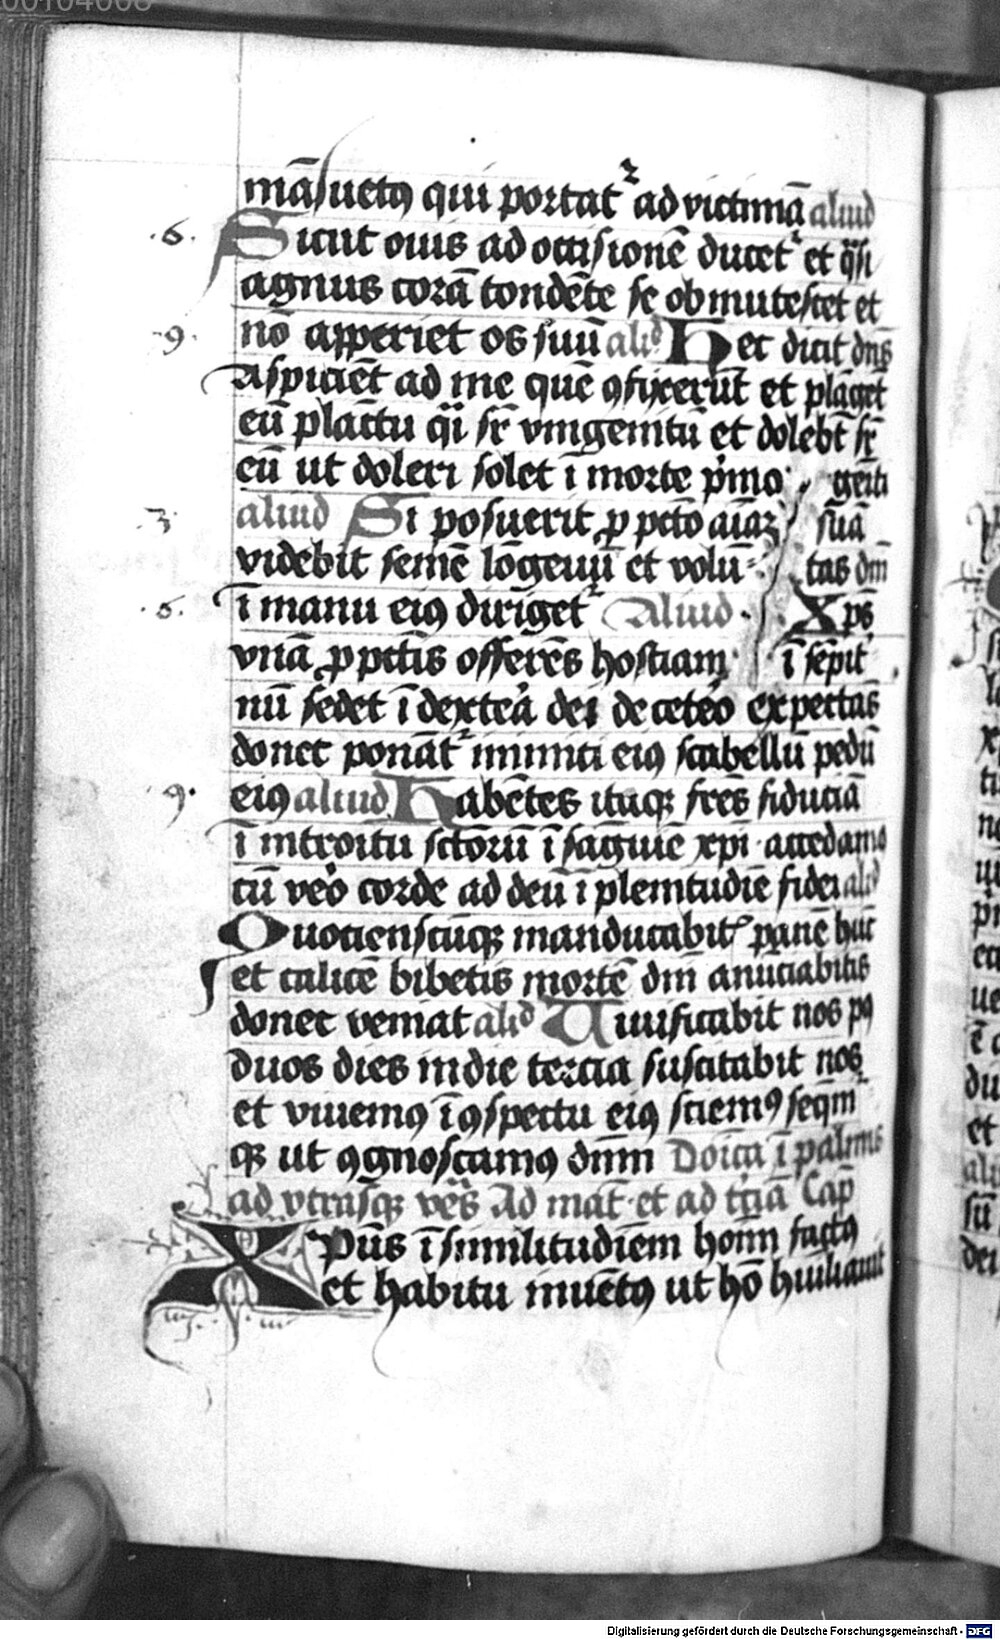 mãsuetꝰ qui portat᷑ ad victimã aliud
.6. Sicut ouis ad occisionẽ ducet᷑ et q̈si
agnus corã tondẽte se obmutescet et
.9. nõ apperiet os suũ aliᵈ Hec dicit dñs
Aspiciẽt ad me quẽ ꝯfixerũt et plãget
eũ plãctu q̈i sr̃ vnigenitũ et dolebt̃ sr̃
eũ ut doleri solet ĩ morte pͥmo geĩti
.3. aliud Si posuerit ꝓ pctõ aĩaʒ suã
videbit semẽ lõgeuũ et volũ tas dñi
.6. ĩ manu eiꝰ diriget᷑ Aliud. Xps̃
vnã ꝓ pctĩs offerẽs hostiam ĩ sẽpit̾
nũ sedet ĩ dextẽa dei de cetẽo expectãs
donec ponãt᷑ inimici eiꝰ scabellũ pedũ
.9. eiꝰ aliud Habẽtes itaqꝫ frẽs fiduciã
ĩ introitu sctõrũ ĩ sãguiẽ xpi accedamꝰ
cũ veõ corde ad deũ ĩ plenitudiẽ fidei aliᵈ
Quocienscũqꝫ manducabit᷑ panẽ hũc
et calicẽ bibetis mortẽ dñi anũciabitis
donec veniat aliᵈ Uiuificabit nos pꝰ
duos dies in die tercia suscitabit nos
et viuemꝰ ĩ ꝯspectu eiꝰ sciemꝰ seqm̃
qꝫ ut ꝯgnoscamꝰ dñm Doĩca ĩ palmis
ad vtrasqꝫ vẽs Ad mat̃ et ad tͥciã Cap̃
Xpũs ĩ similitudĩem hoĩm factꝰ
et habitu inuẽtꝰ ut hõ huĩliauit
Digitalisierung gefördert durch die Deutsche Forschungsgemeinschaft - DFG